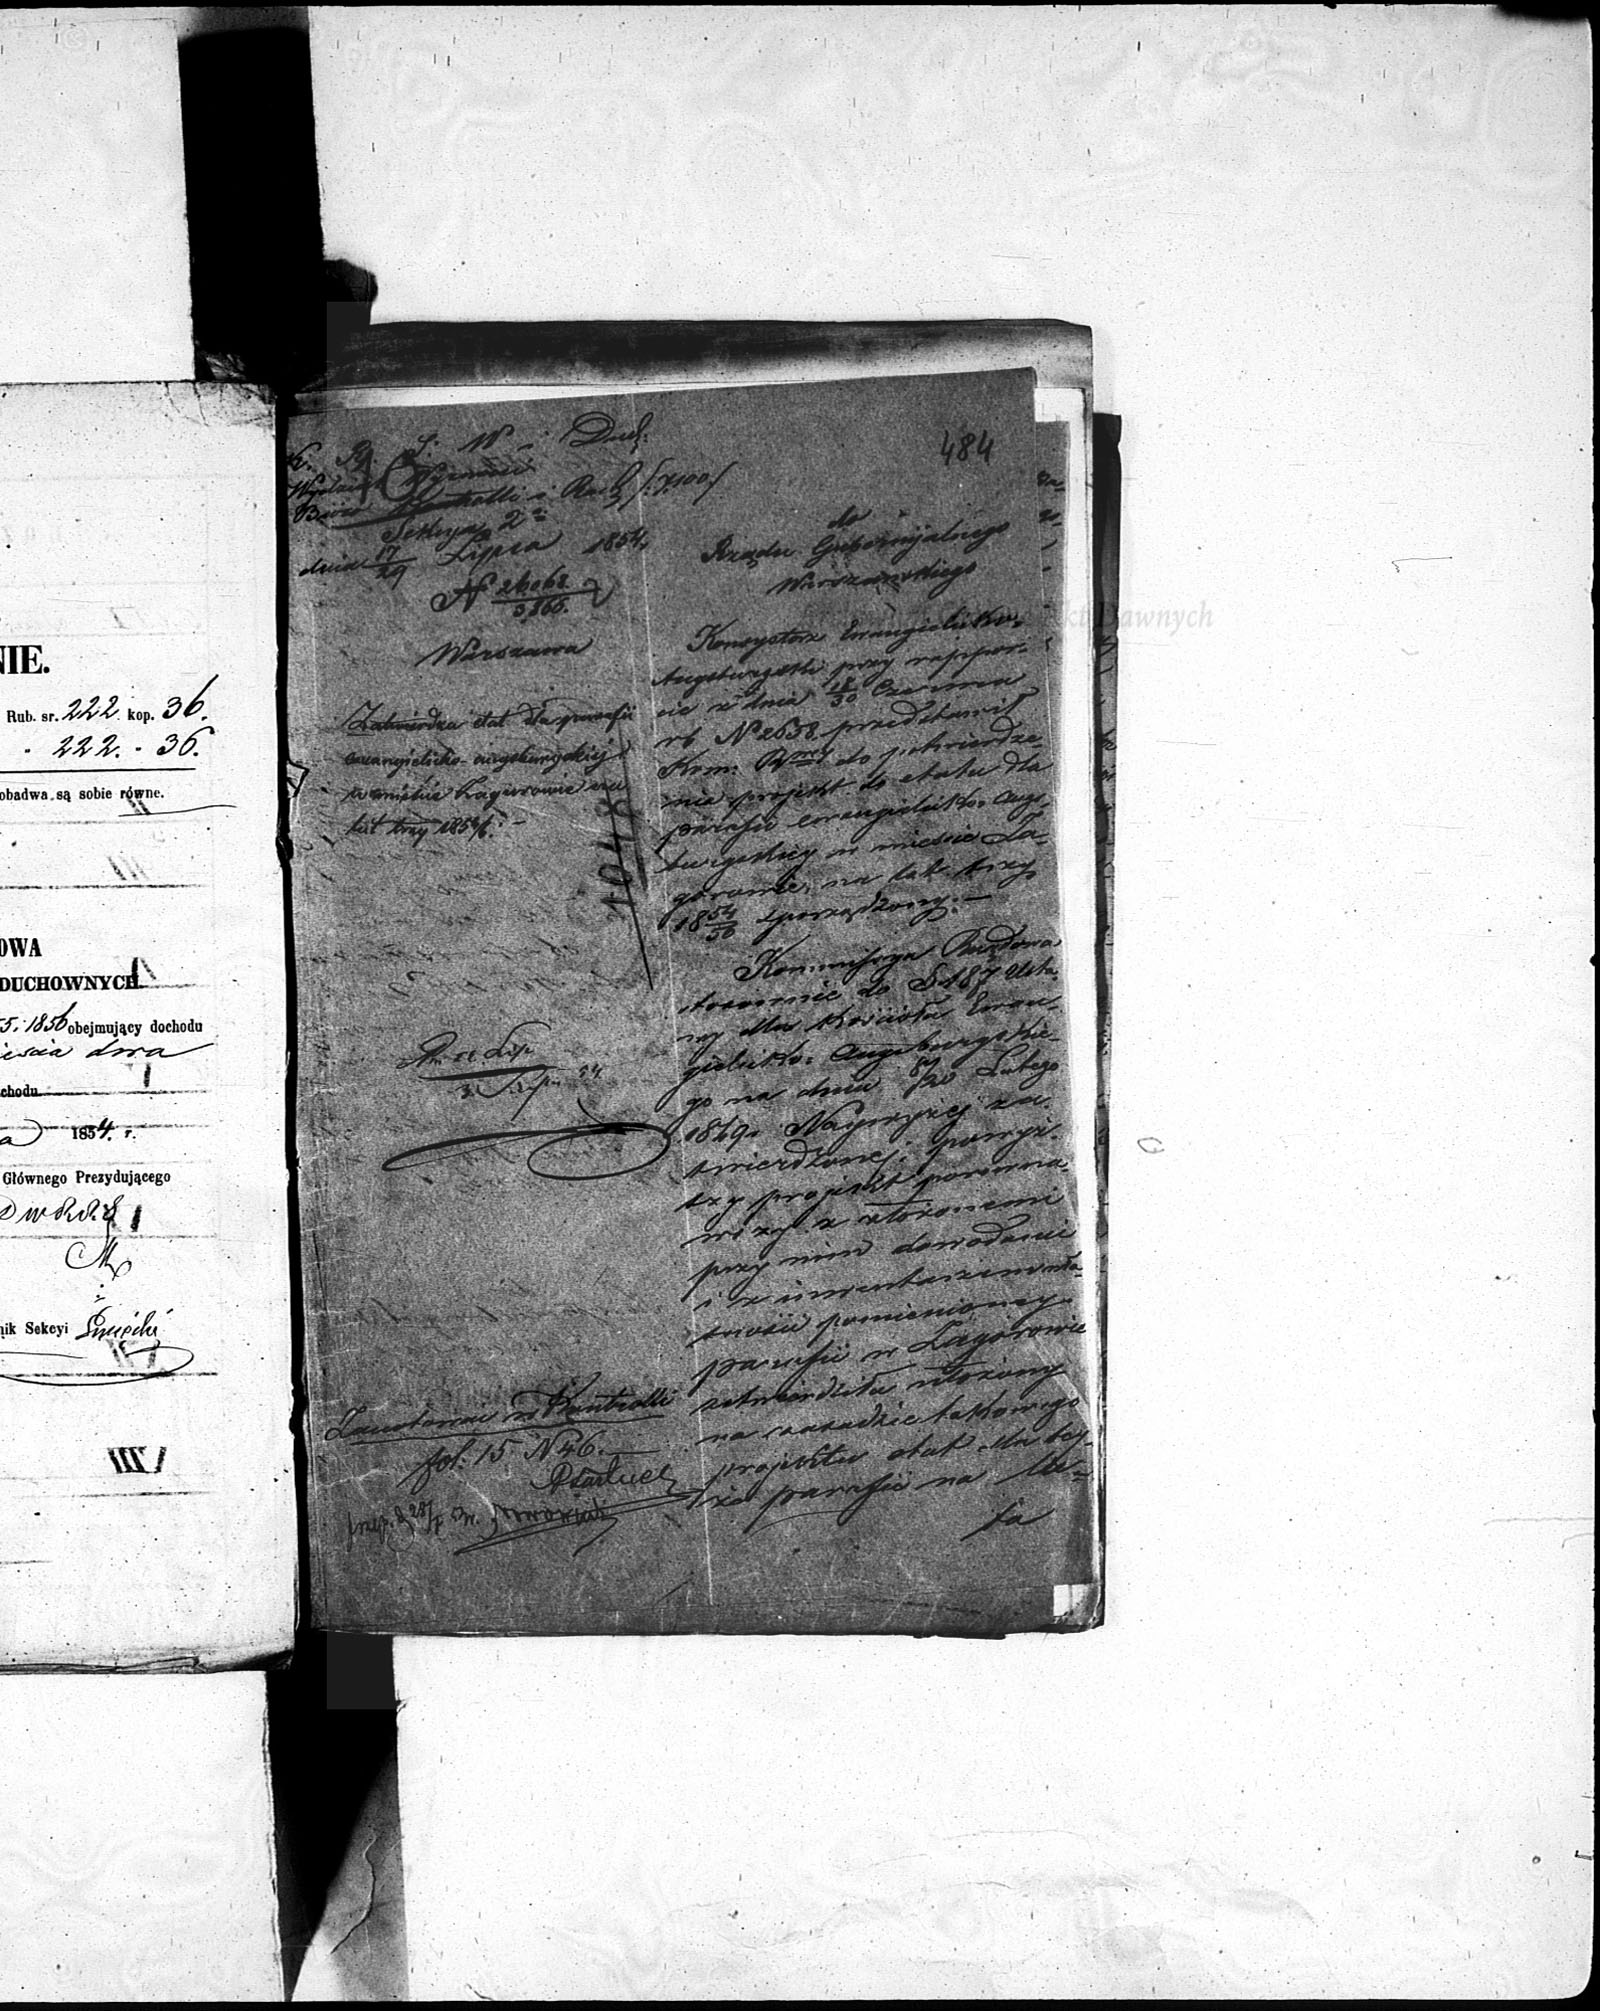 NIE.
Rub. sr. 222 kop. 36.
- 222. - 36.
obadwa są sobie równe.
OWA
DUCHOWNYCH
5. 1856 obejmujący dochodu
dwa
chodu
1854. r.
Głównego Prezydującego
nik Sekcyi
484
K. R. S. W. i Duch:
Wydział Wyznań
Kontrolli i Rach. /:7.100/
Sekcya 2a
dnia 17/29 Lipca 1854.
N 26068/3,865.
Warszawa
Zatwierdza etat dla parafii
ewangielicko-augsburgskiej
w mieście Zagurowie na
lat trzy 1854/6. -
1048
Zanotowano w Kontrolli
fol: 15 N 46.
do
Rządu Gubernijalnego
Warszawskiego
Akt Dawnych
Konsystorz Ewangielicko-
Augsburgski przy rappor-
cie z dnia 18/30 Czerwca
rb N 2658 przedstawił
Kom: Rzowej do potwierdze-
nia projekt do etatu dla
parafii ewangielicko-augs-
burgskiej w mieście Za-
gurowie, na lat trzy
1854/56 sporządzony. -
Kommissya Rządowa
stosownie do § 187 Usta-
wy dla Kościoła Ewan-
gielicko-Augsburgskie-
go na dniu 8/20 Lutego
1849 r. Najwyżej za-
twierdzonej, powyż-
szy projekt porówna-
wszy z złożonemi
przy nim dowodami
i z inwentarzem
pomienionej
parafii w Zagórowie
zatwierdziła ułożony
na zasadzie takowego
projektu etat dla tej-
że parafii na la-
ta